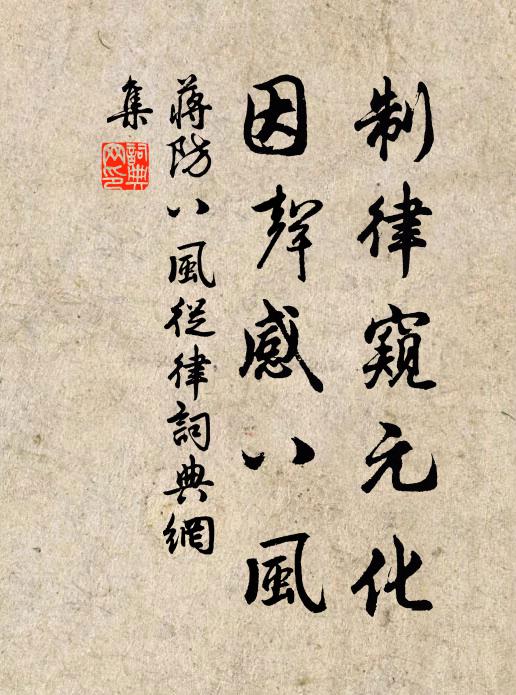 制律窺元化
因聲感八風
蔣防八風從律詞典網
集
詞典
网印